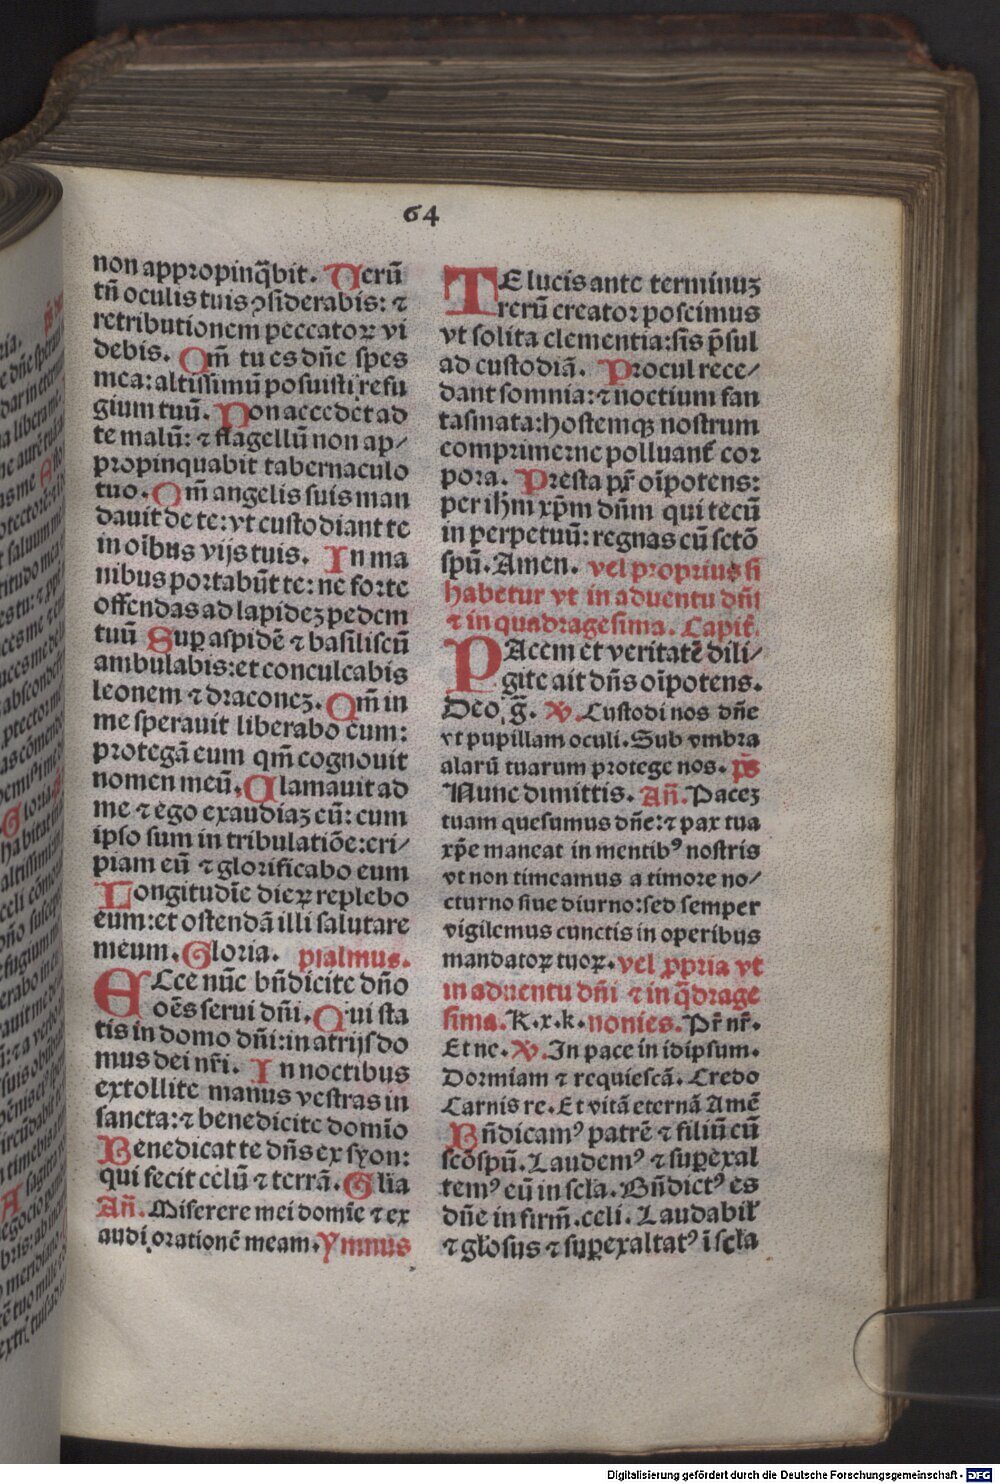 64
non appropinq̃bit. Uerũ
tñ oculis tuis ꝯsiderabis: ⁊
retributionem peccatoꝝ vi
debis. Qm̃ tu es dñe spes
mea: altissimũ posuisti refu
gium tuũ. Non accedet ad
te malũ: ⁊ flagellũ non ap/
propinquabit tabernaculo
tuo. Qm̃ angelis suis man
dauit de te: vt custodiant te
in oĩbus vijs tuis. In ma
nibus portabũt te: ne forte
offendas ad lapideʒ pedem
tuũ Suꝑ aspidẽ ⁊ basiliscũ
ambulabis: et conculcabis
leonem ⁊ draconeʒ. Qm̃ in
me sperauit liberabo eum:
protegã eum qm̃ cognouit
nomen meũ. Clamauit ad
me ⁊ ego exaudiaʒ eũ: cum
ipso sum in tribulatiõe: eri/
piam eũ ⁊ glorificabo eum
Longitudĩe dieꝝ replebo
eum: et ostendã illi salutare
meum. Gloria. psalmus.
ECce nũc bñdicite dño
oẽs serui dñi. Qui sta
tis in domo dñi: in atrijs do
mus dei nr̃i. In noctibus
extollite manus vestras in
sancta: ⁊ benedicite domĩo
Benedicat te dñs ex syon:
qui fecit celũ ⁊ terrã. Glia
Añ. Miserere mei domĩe ⁊ ex
audi orationẽ meam. Ymnus
TE lucis ante terminuʒ
rerũ creator poscimus
vt solita clementia: sis p̃sul
ad custodiã. Procul rece/
dant somnia: ⁊ noctium fan
tasmata: hostemqʒ nostrum
comprime ne polluant̃ cor
pora. Presta pr̃ oĩpotens:
per ih̃m xp̃m dñm qui tecũ
in perpetuũ: regnas cũ sctõ
spũ. Amen. vel proprius si
habetur vt in aduentu dñi
⁊ in quadragesima. Capit̃.
PAcem et veritatẽ dili/
gite ait dñs oĩpotens.
Deo g̃. ℣. Custodi nos dñe
vt pupillam oculi. Sub vmbra
alarũ tuarum protege nos. p̃s
Nunc dimittis. Añ. Paceʒ
tuam quesumus dñe: ⁊ pax tua
xp̃e maneat in mentibꝰ nostris
vt non timeamus a timore no/
cturno siue diurno: sed semper
vigilemus cunctis in operibus
mandatoꝝ tuoꝝ. vel ꝓpria vt
in aduentu dñi ⁊ in q̃drage
sima. K. x. k. nonies. Pr̃ nr̃.
Et ne. ℣. In pace in idipsum.
Dormiam ⁊ requiescã. Credo
Carnis re. Et vitã eternã Amẽ
Bñdicamꝰ patrẽ ⁊ filiũ cũ
scõ spũ. Laudemꝰ ⁊ suꝑexal
temꝰ eũ in scla. Bñdictꝰ es
dñe in firm̃. celi. Laudabił
⁊ głosus ⁊ suꝑexaltatꝰ ĩ scła
Digitalisierung gefördert durch die Deutsche Forschungsgemeinschaft - DFG